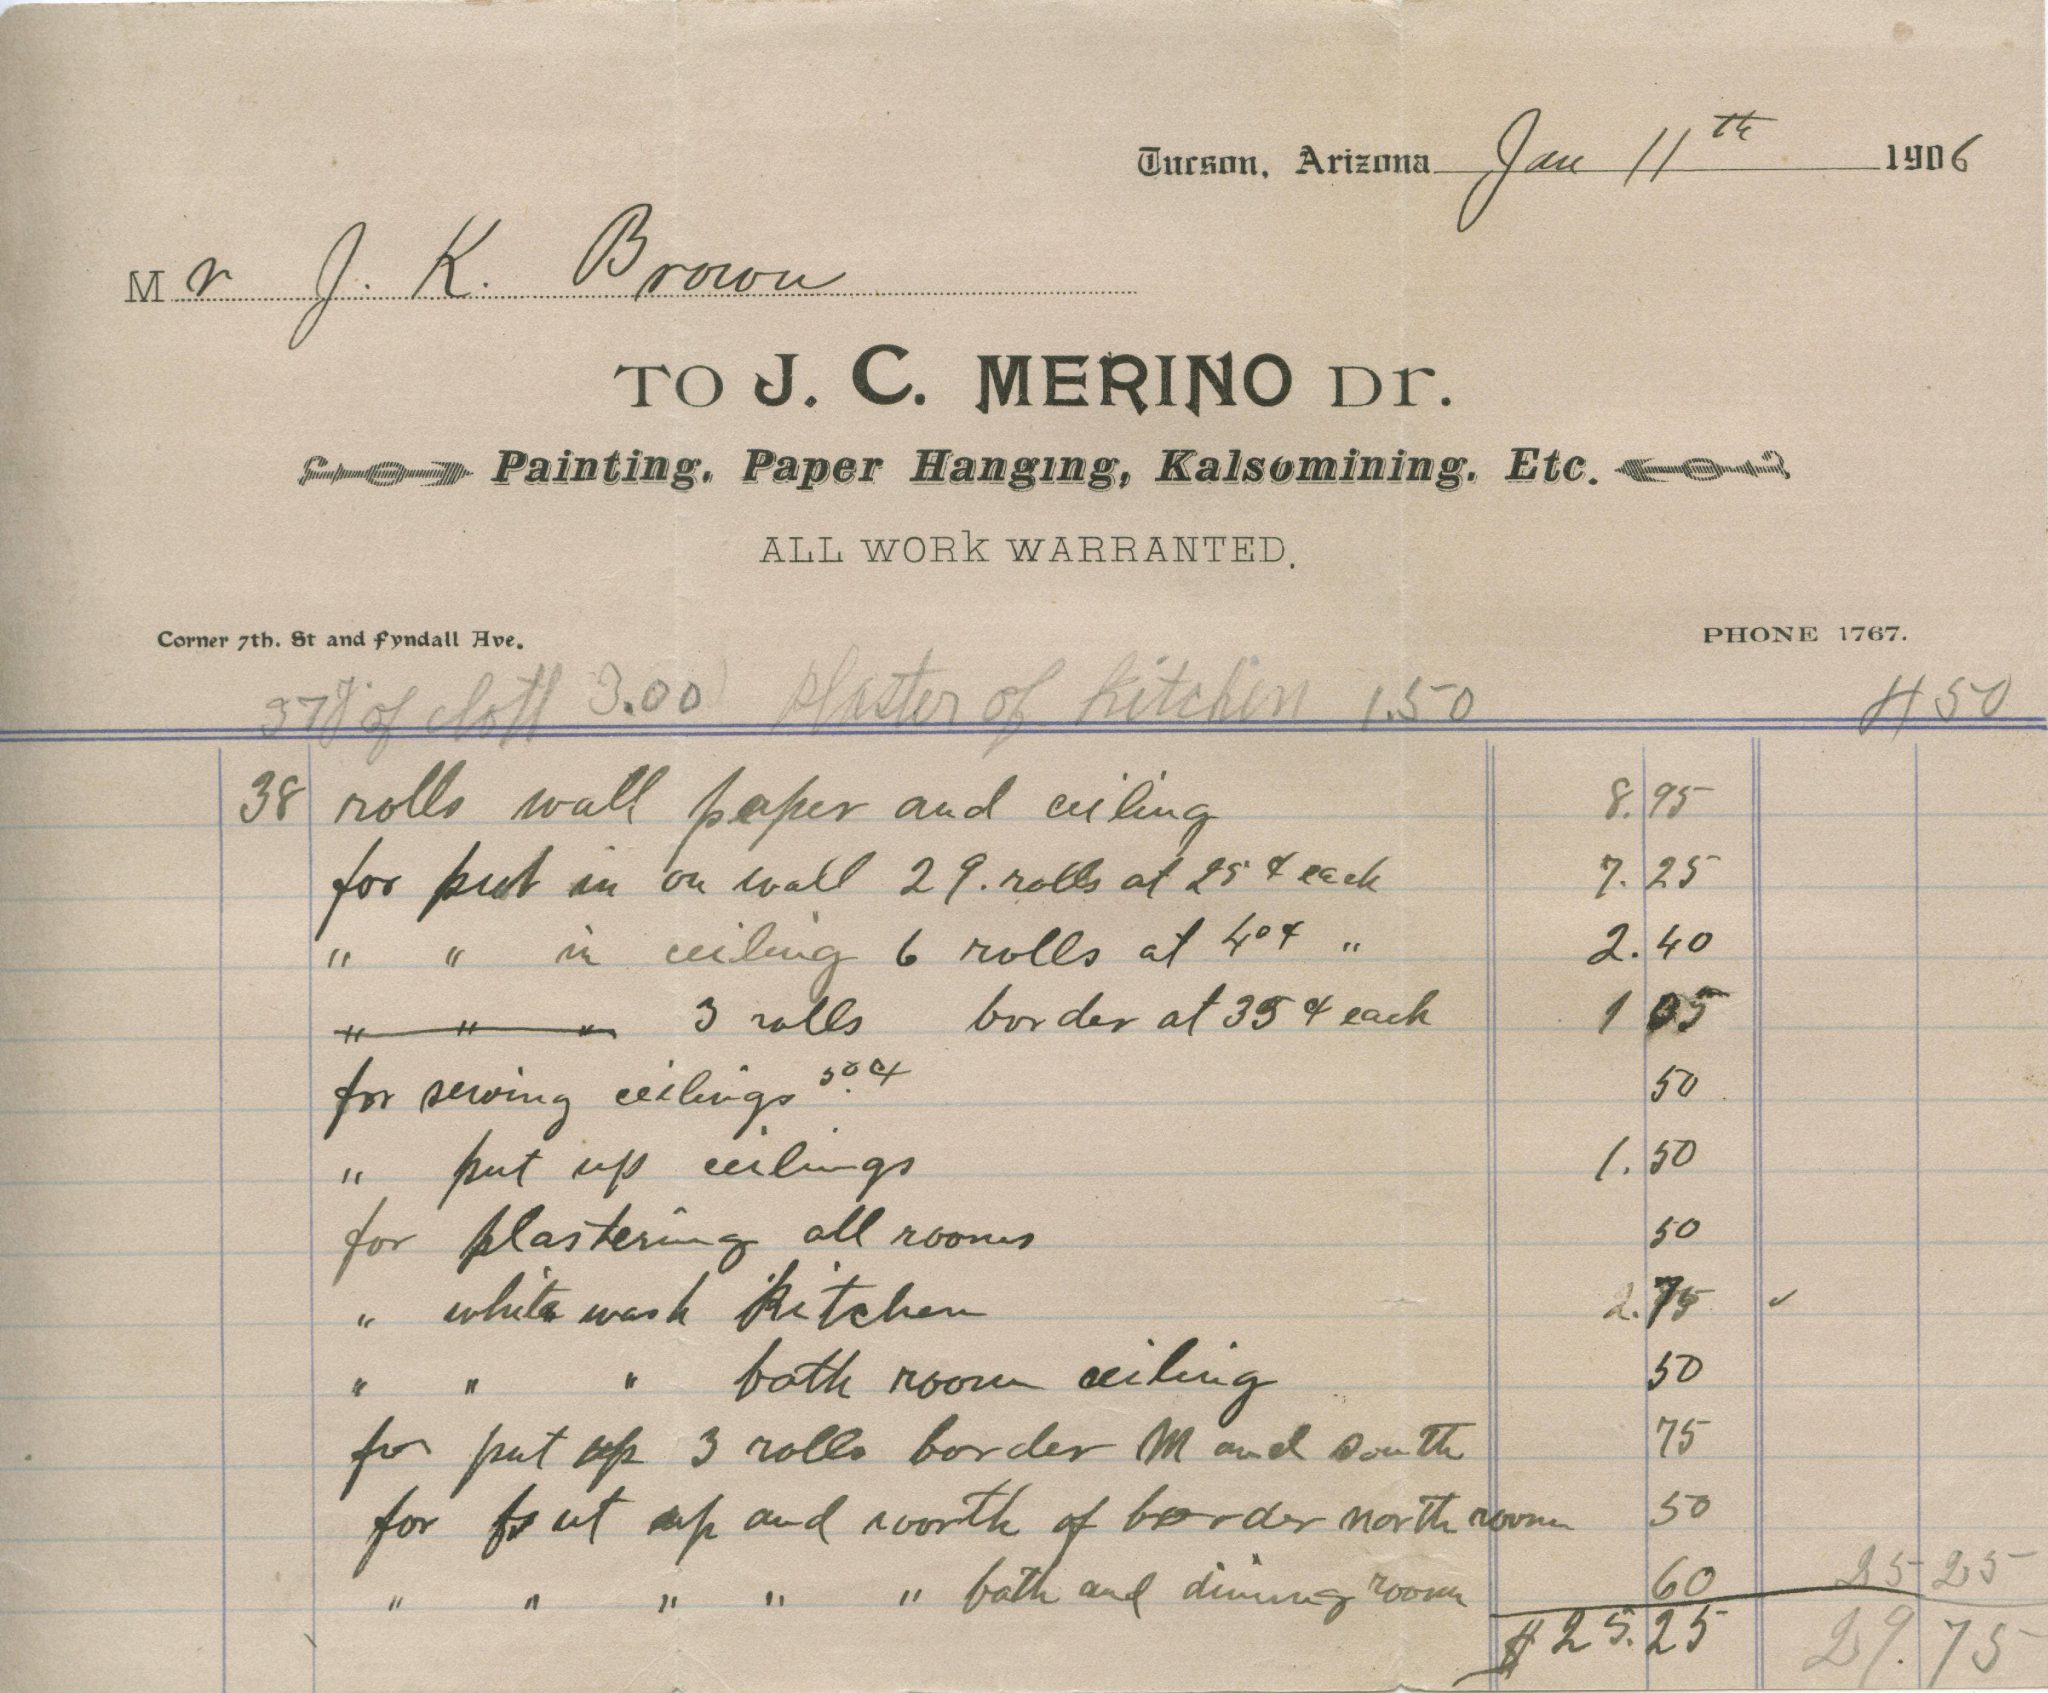 Tucson, Arizona Jan 11th 1906
Mr J. K. Brown
TO J. C. MERINO Dr.
Painting, Paper Hanging, Kalsomining, Etc.
ALL WORK WARRANTED.
Corner 7th. St and Tyndall Ave. PHONE 1767.
of cloth 3.00 plaster of Kitchen 1.50 4 50
38 rolls wall paper and ceiling 8.95
for put in on wall 29. rolls at 25¢ each 7.25
" " in ceiling 6 rolls at 40¢ " 2.40
" " " 3 rolls border at 35¢ each 1 05
for sewing ceilings 50¢ 50
" put up ceilings 1.50
for plastering all rooms 50
" white wash Kitchen 2.75 ✓
" " " bath room ceiling 50
for put up 3 rolls border M and south 75
for put up and worth of border north room 50
" " " " " bath and dining room 60 25 25
$25.25 29.75